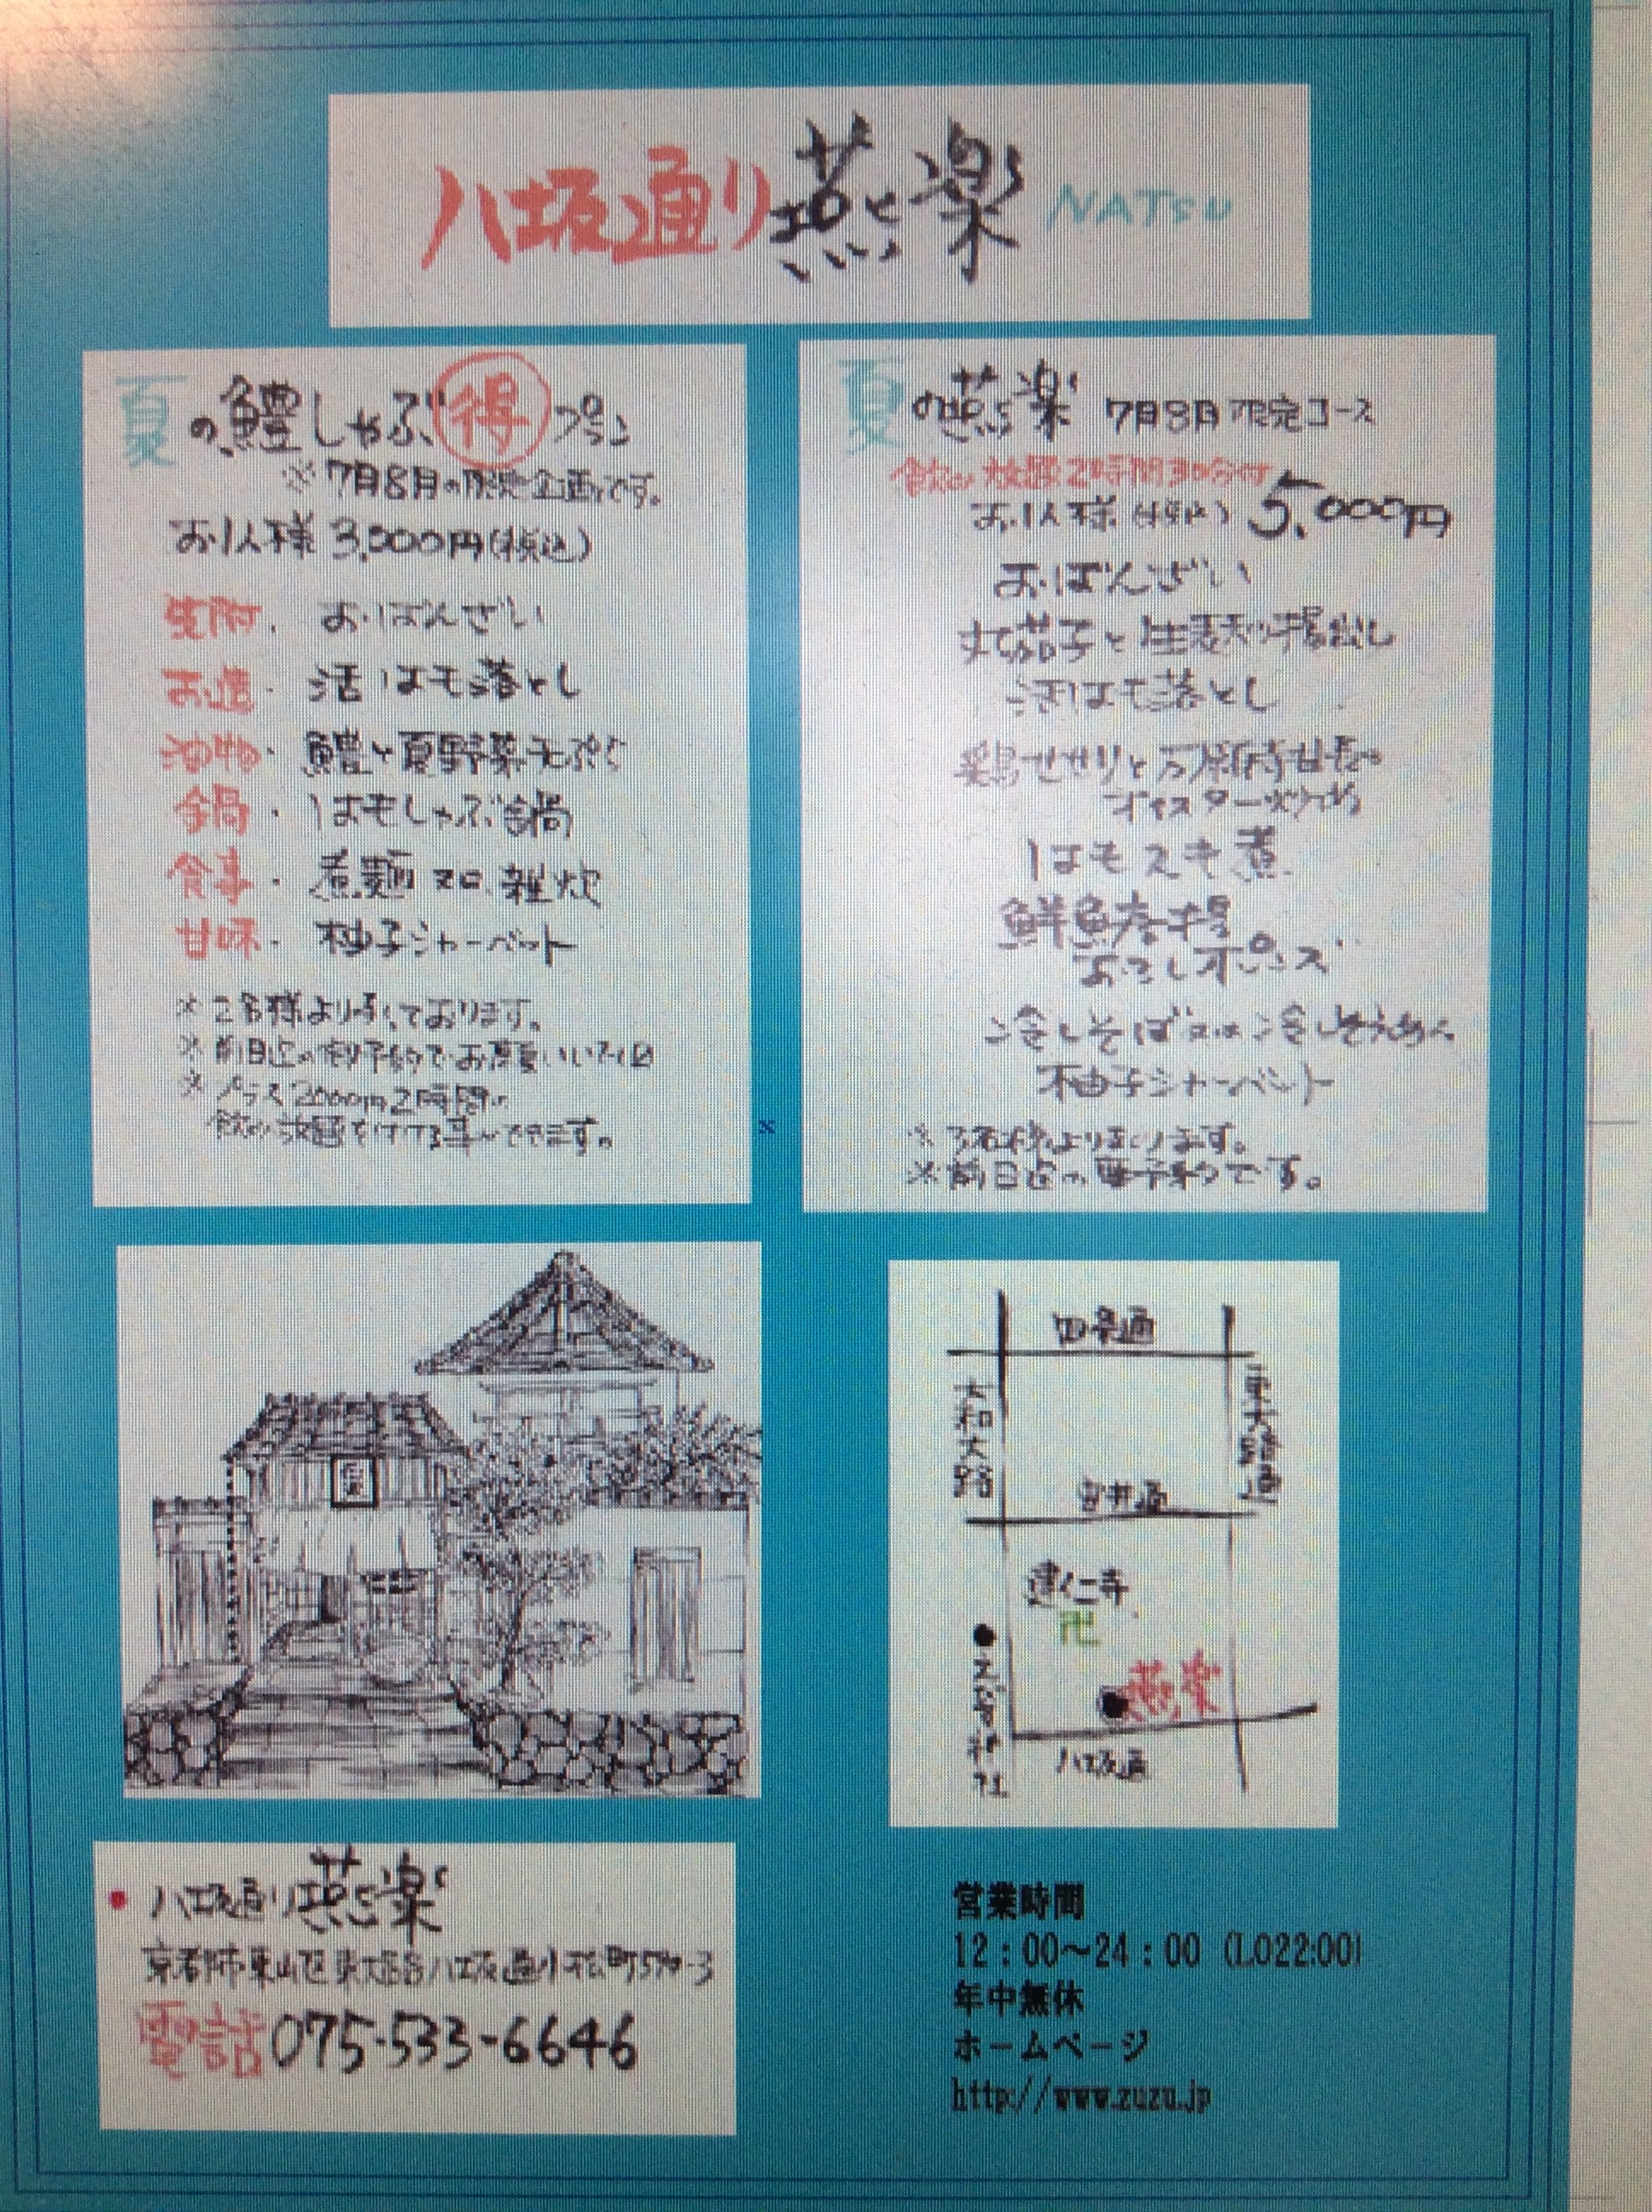 八坂通り燕楽 NATSU
夏の鱧しゃぶ得プラン
※7月8月の限定企画です。
お1人様 3,000円(税込)
先附. おばんざい
お造. 活はも落とし
油物. 鱧と夏野菜天ぷら
鍋. はもしゃぶ鍋
食事. 煮麺又は雑炊
甘味. 柚子シャーベット
※2名様より承っております。
※前日迄の御予約でお願い
※プラス2000円2時間の
飲み放題を付ける事ができます。
夏の燕楽 7月8月限定コース
飲み放題2時間30分付
お1人様(税込) 5,000円
おばんざい
丸茄子と生麸の揚出し
活はも落とし
鶏せせりと万願寺甘長の
オイスター炒め
はもスキ煮
鮮魚唐揚
おろしポンズ
冷しそば又は冷しそうめん
柚子シャーベット
※2名様より承ります。
※前日迄の要予約です。
四条通
大和大路
東大路通
安井通
建仁寺
卍
燕楽
神社
八坂通
八坂通り燕楽
京都市東山区東大路八坂通小松町570-3
電話075-533-6646
営業時間
12：00～24：00（LO22:00）
年中無休
ホームページ
http://www.zuzu.jp